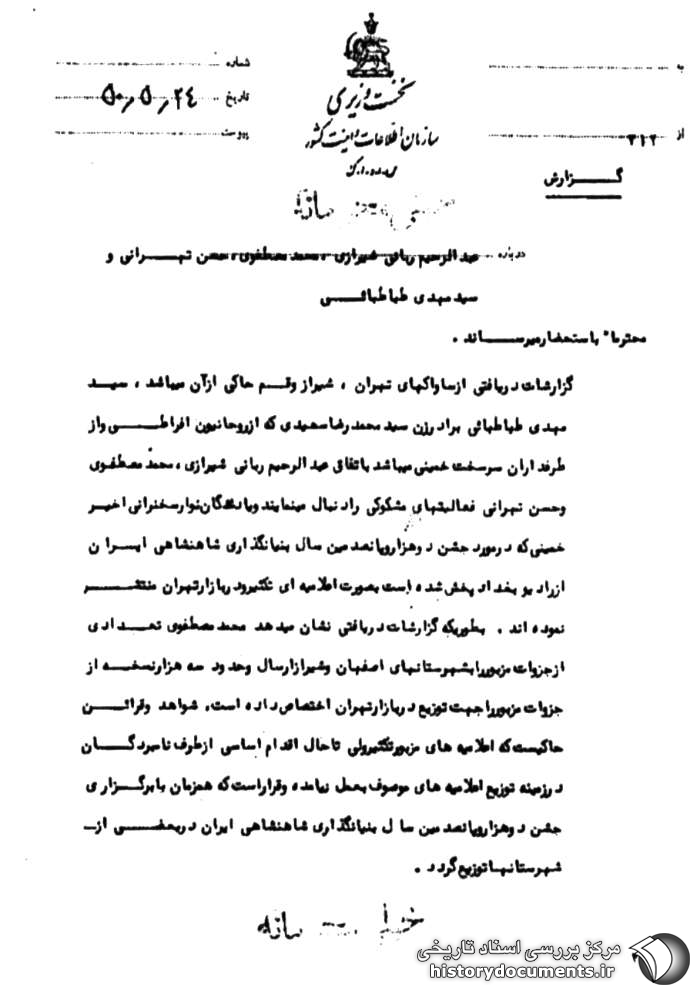 نخست وزیری
سازمان اطلاعات و امنیت کشور
به
شماره
تاریخ ۵۰٫۵٫۲۴
پیوست
از ۳۱۲
گـــزارش
درباره عبدالرحیم ربانی شیرازی ، محمد مصطفوی ، حسن تهـرانی و
سید مهدی طباطبائـــی
محترماً باستحضار میرسـاند .
گزارشات دریافتی ازساواکهای تهران ، شیراز وقـم حاکی ازآن میباشد ، سیـد
مهدی طباطبائی برادرزن سید محمدرضا سعیدی که ازروحانیون افراطـی واز
طرفداران سرسخت خمینی میباشد باتفاق عبدالرحیم ربانی شیرازی ، محمد مصطفوی
وحسن تهرانی فعالیتهای مشکوکی رادنبال مینمایند نوارسخنرانی اخیـر
خمینی که درمورد جشن دوهزاروپانصدمین سال بنیانگذاری شاهنشاهی ایـران
ازرادیو بغداد پخش شده است بصورت اعلامیه ای تکثیرودربازارتهران منتشـر
نموده اند . بطوریکه گزارشات دریافتی نشان میدهد محمد مصطفوی تعـدادی
ازجزوات مزبوررابشهرستانهای اصفهان وشیرازارسال وحدود سه هزارنسخـه از
جزوات مزبورراجهت توزیع دربازارتهران اختصاص داده است. شواهد وقرائـن
حاکیست که اعلامیه های مزبورتکثیرولی تاحال اقدام اساسی ازطرف نامبردگـان
درزمینه توزیع اعلامیه های موصوف بعمل نیامده وقراراست که همزمان بابرگـزاری
جشن دوهزاروپانصدمین سال بنیانگذاری شاهنشاهی ایران دربعضـی از
شهرستانهاتوزیع گردد .
مرکز بررسی اسناد تاریخی
historydocuments.ir